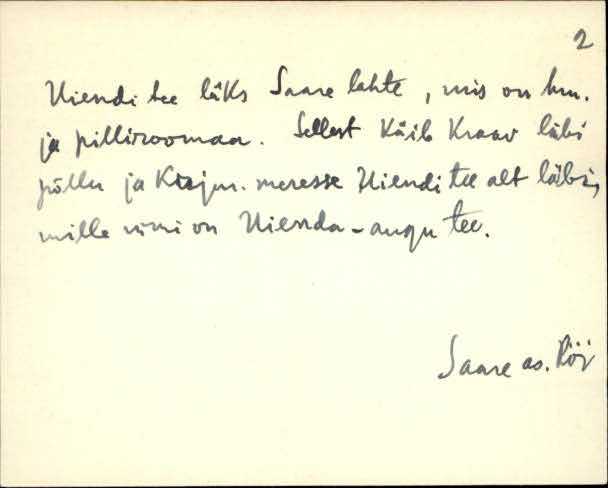 2
Uiendi tee läks Saare lahte, mis on hm.
ja pilliroomaa. Sellest käib kraav läbi
põllu ja Karjun. meresse Uiendi tee alt läbi,
mille nimi on Uienda-augu tee.
Saare as. Röi